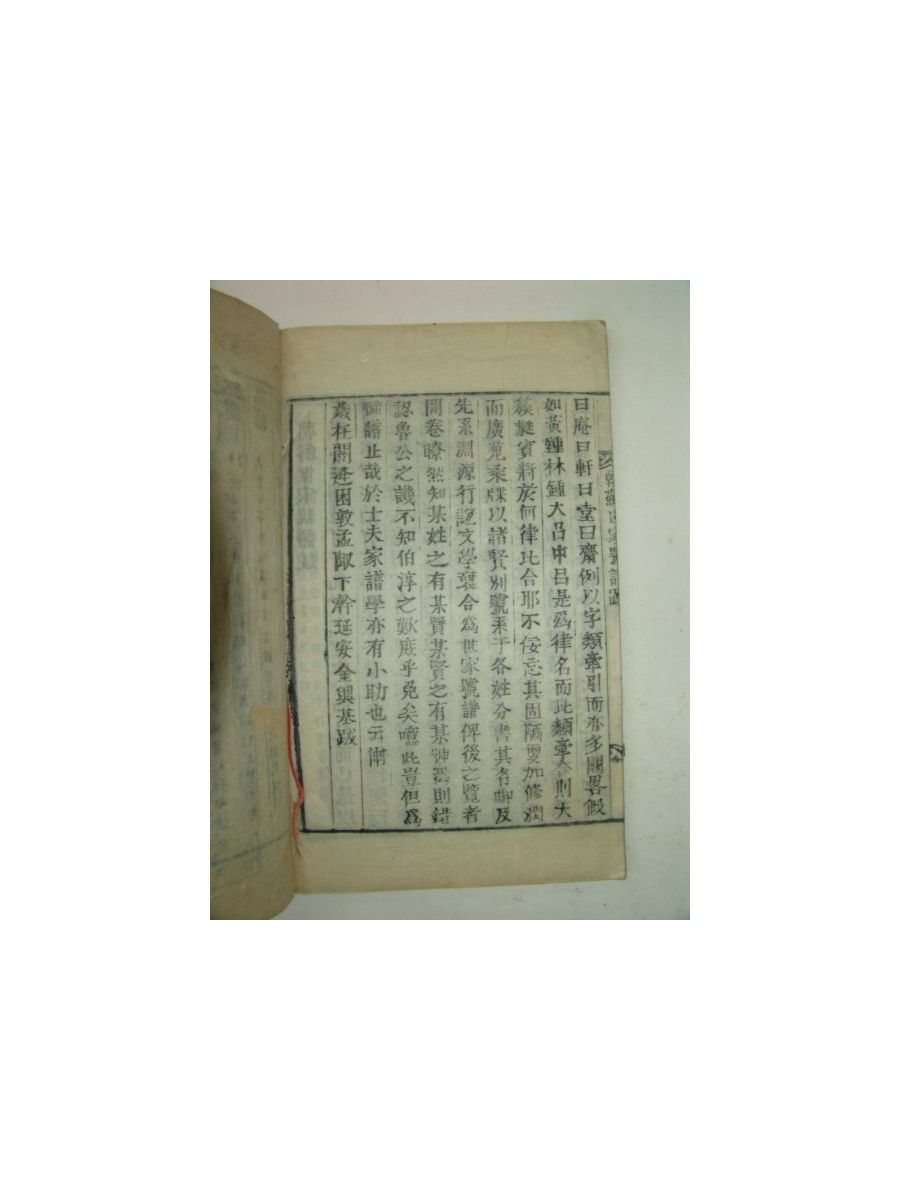 朝鮮世家號譜跋
曰庵曰軒曰堂曰齋例以字類彙引而亦多闕畧假
如黃鍾林鍾大呂中呂是爲律名而此類彙令則大
簇蕤賓將於何律比合耶不佞忘其固陋更加修潤
而廣蒐乘牒以諸賢別號系于各姓分書其名啣及
先系淵源行誼文學裒合爲世家號譜俾後之覽者
開卷瞭然知某姓之有某賢某賢之有某號焉則錯
認魯公之譏不知伯淳之歎庶乎免矣噫此豈但爲
號譜止哉於士夫家譜學亦有小助也云爾
歲在閼逢困敦孟陬下澣延安金興基跋